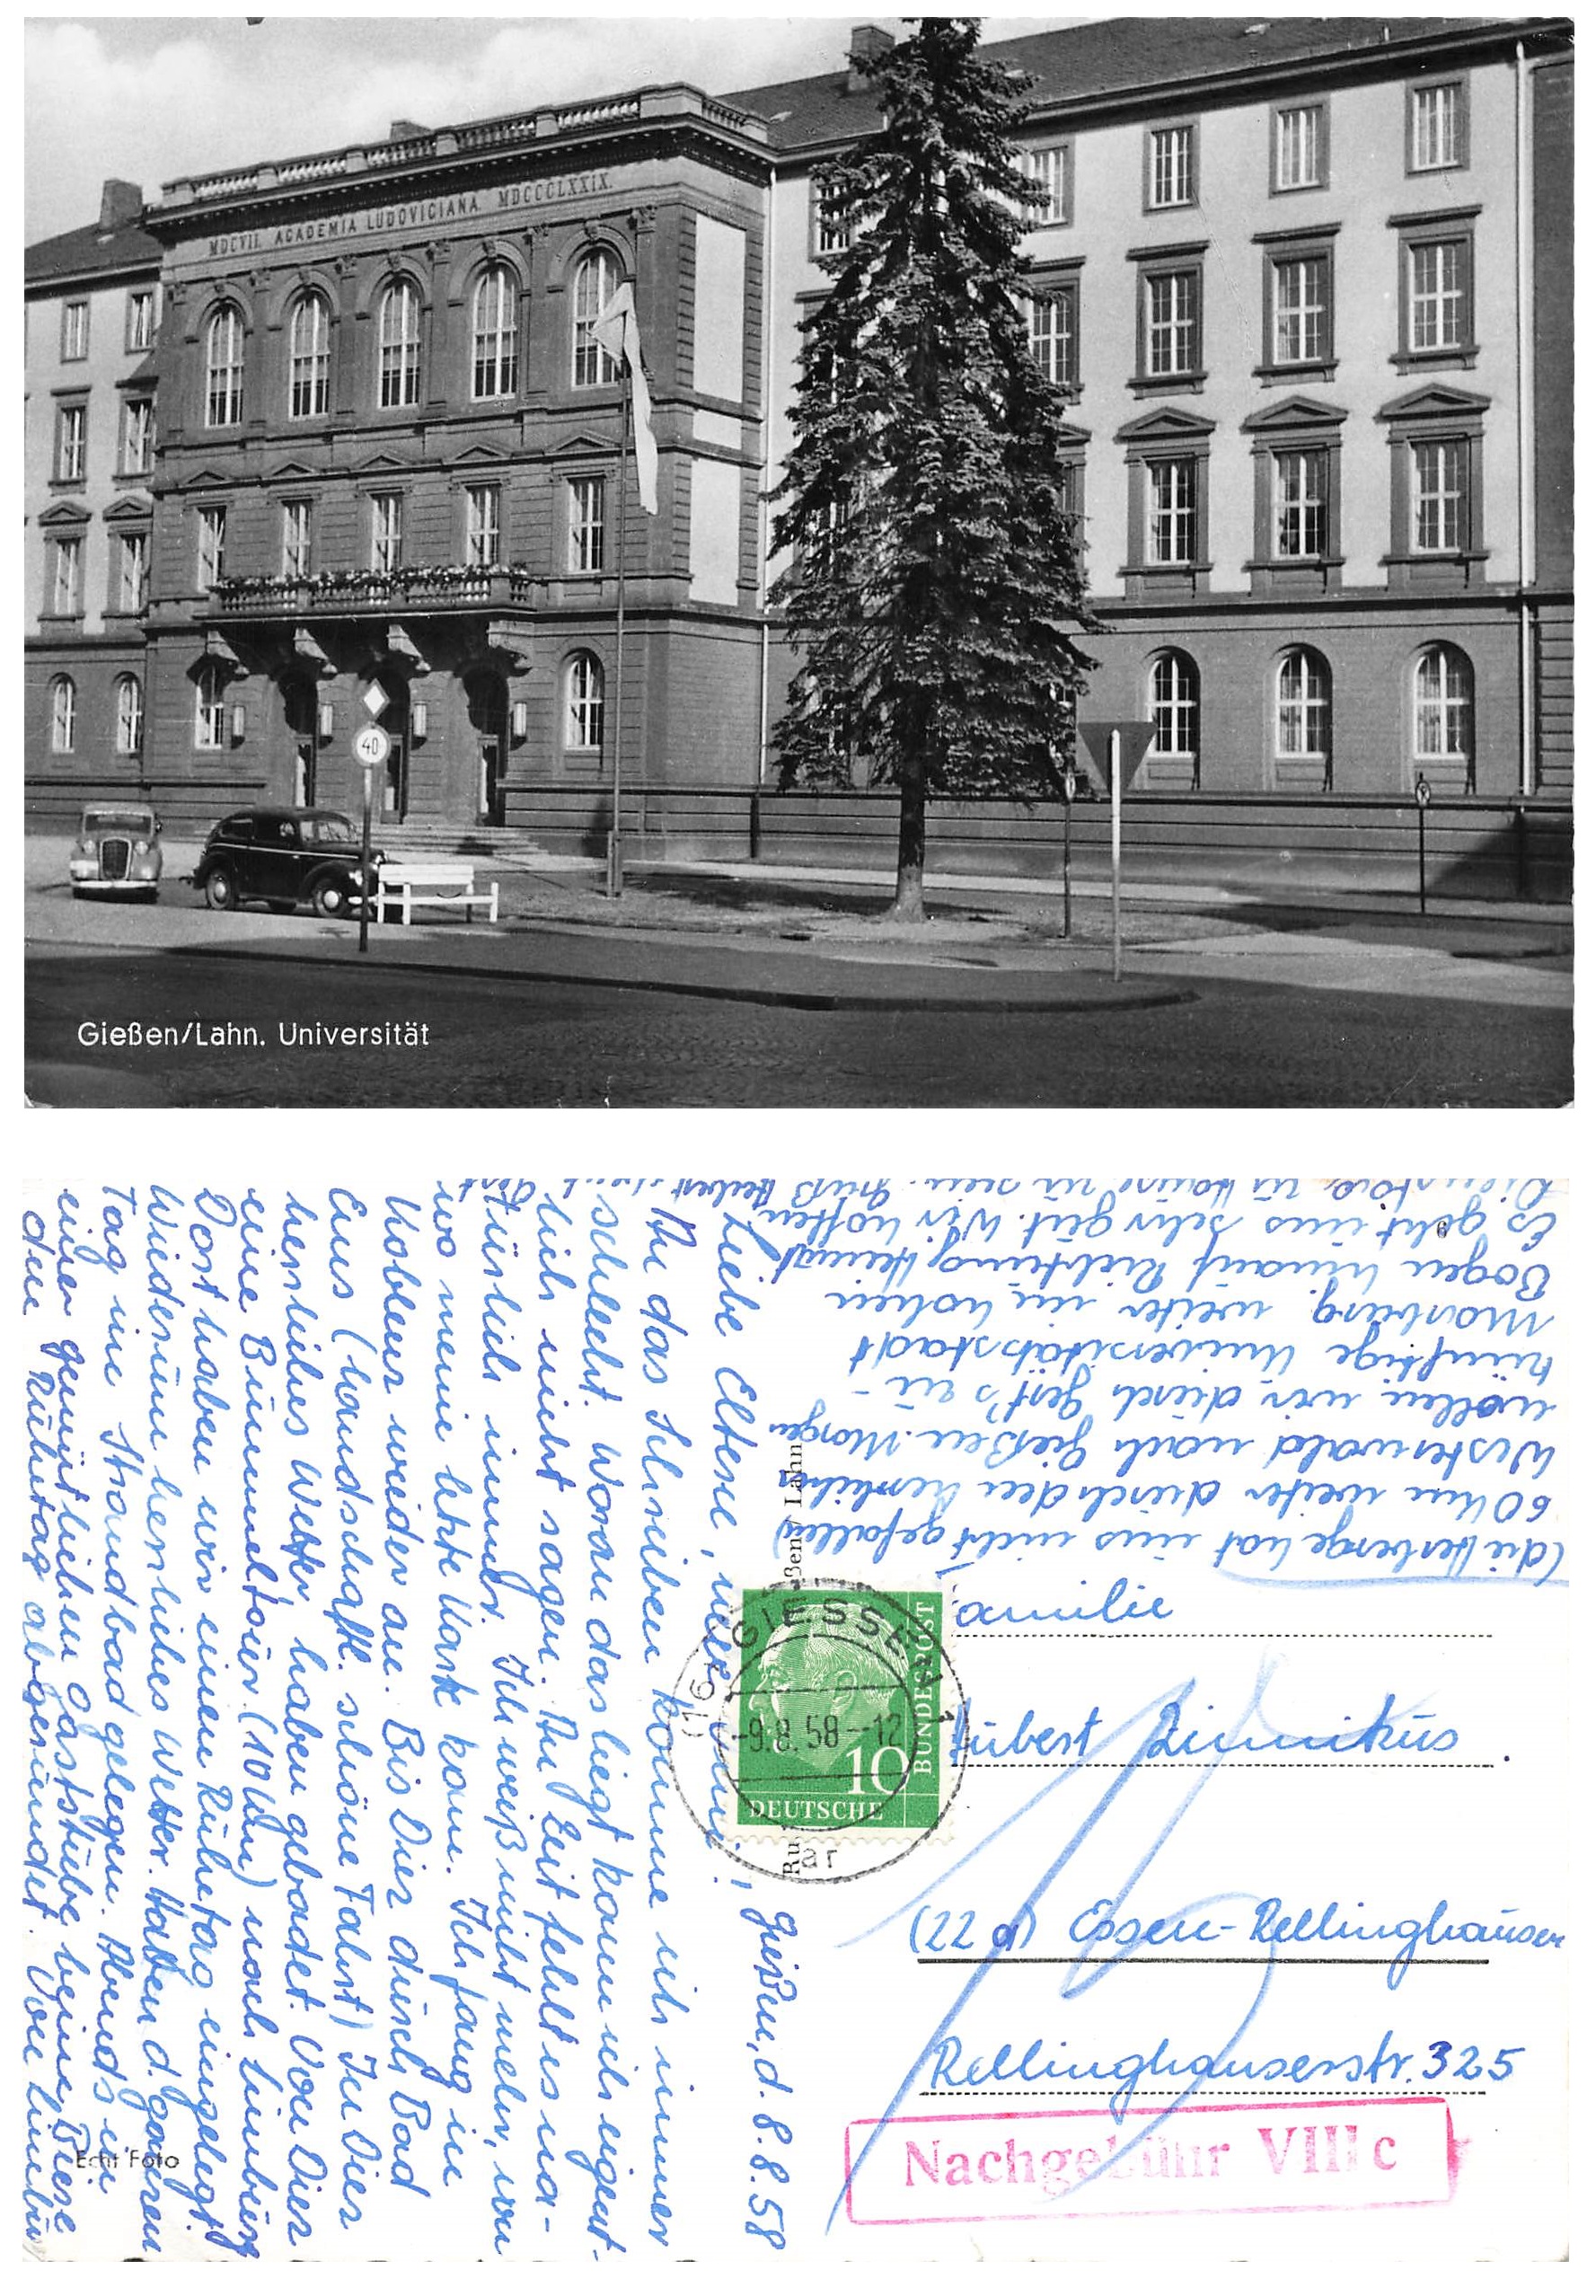 MDCVII. ACADEMIA LUDOVICIANA MDCCCLXXIX.
40
Gießen/Lahn. Universität
Gießen, d. 8.8.58
Liebe Eltern,
An das Schreiben komme ich immer
schlecht. Woran das liegt kann ich eigent-
lich nicht sagen. An Zeit fehlt es na-
türlich immer. Ich weiß nicht mehr, von
wo meine letzte Karte kam. Ich fang in
Koblenz wieder an. Bis Diez durch Bad
Ems (landschaftl. schöne Fahrt) In Diez
herrliches Wetter, haben gebadet. Von Diez
eine Bummeltour (10 km) nach Limburg
Dort haben wir einen Ruhetag eingelegt.
Wiederum herrliches Wetter. Hatten d. ganzen
Tag im Strandbad gelegen. Abends in
einer gemütlichen Gaststube beim Biere
den Ruhetag abgerundet. Von Limburg
(die Herberge hat uns nicht gefallen)
60 km weiter durch den herrlichen
Westerwald nach Gießen. Morgen
wollen wir durch Gert's zu-
künftige Universitätsstadt
Marburg, weiter im hohen
Bogen hinauf Richtung Heimat
Es geht uns sehr gut. Wir hoffen
zu Hause zu sein. Gruß
6
Lahn
Echt Foto
(16) GIESSEN 1
-9.8.58--12
ar
10
DEUTSCHE
BUNDESPOST
Familie
Hubert Zimnikus
(22 a) Essen-Rellinghausen
Rellinghauserstr. 325
Nachgebühr VIII c